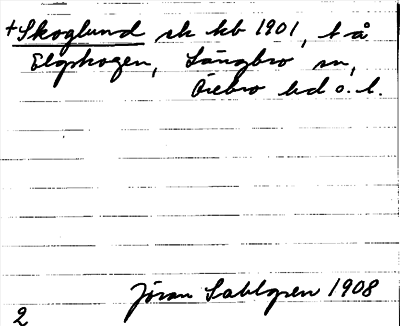 +Skoglund sk kb 1901, t å
Elgskogen, Längbro sn,
Örebro hd ö. l.
Jöran Sahlgren 1908
2